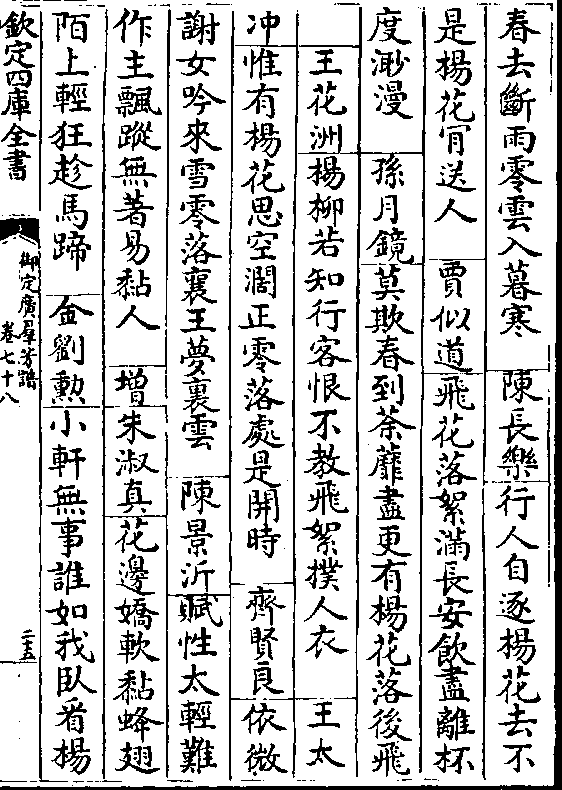 春去斷雨零雲入暮寒　陳長樂行人自逐楊花去不
是楊花肎送人　賈似道飛花落絮滿長安飲盡離杯
度渺漫　孫月鏡莫欺春到荼蘼盡更有楊花落後飛
王花洲楊柳若知行客恨不教飛絮撲人衣　王太
冲惟有楊花思空濶正零落處是開時　齊賢良依微
謝女吟來雪零落襄王夢裏雲　陳景沂賦性太輕難
作主飄蹤無著易黏人　增朱淑真花邊嬌軟黏蜂翅
陌上輕狂趁馬蹄　金劉勲小軒無事誰如我臥看楊
欽定四庫全書
御定廣羣芳譜
卷七十八
二十五